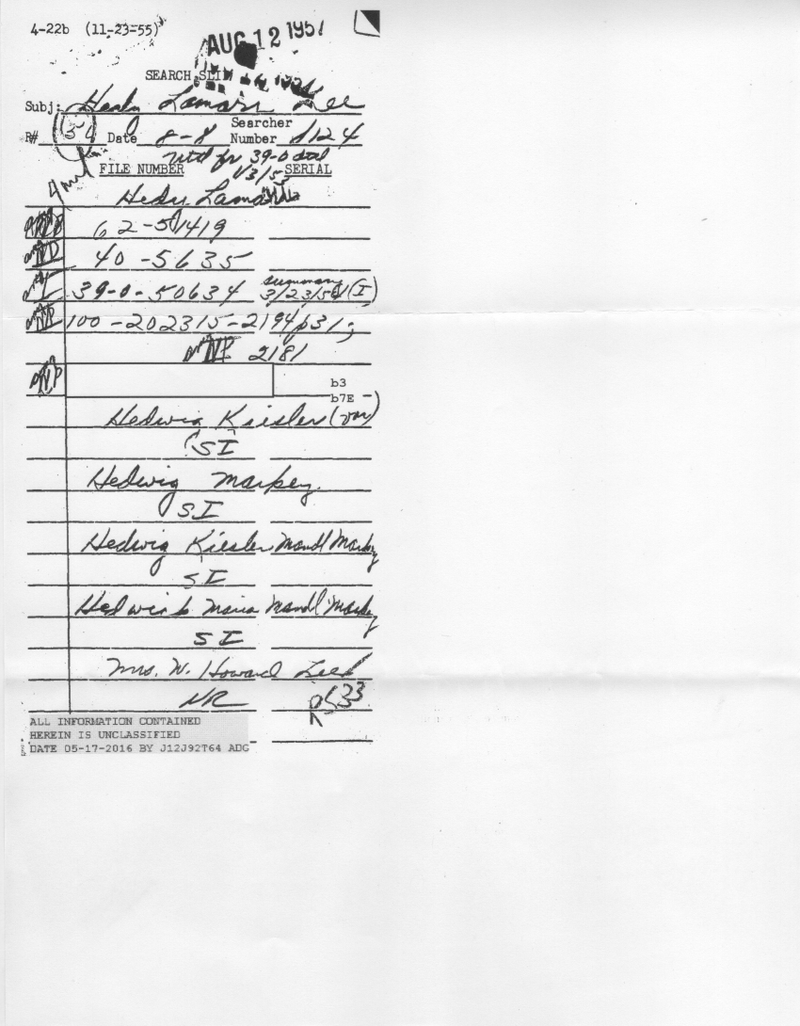 4-22b (11-23-55)
AUG 12 1957
SEARCH SLIP
Subj: Hedy Lamarr Lee
Searcher
R# Date 8-8 Number
for 39-0
FILE NUMBER SERIAL
Hedy Lamarr
62-51419
40-5635
I 39-0-50634 summary (I)
100-202315-2194p31;
2181
b3
b7E
Hedwig Kiesler (var)
SI
Hedwig Markey
SI
Hedwig Kiesler Mandl Markey
SI
Hedwig Maria Mandl Markey
SI
Mrs. W. Howard Lee
NR
ALL INFORMATION CONTAINED
HEREIN IS UNCLASSIFIED
DATE 05-17-2016 BY J12J92T64 ADG